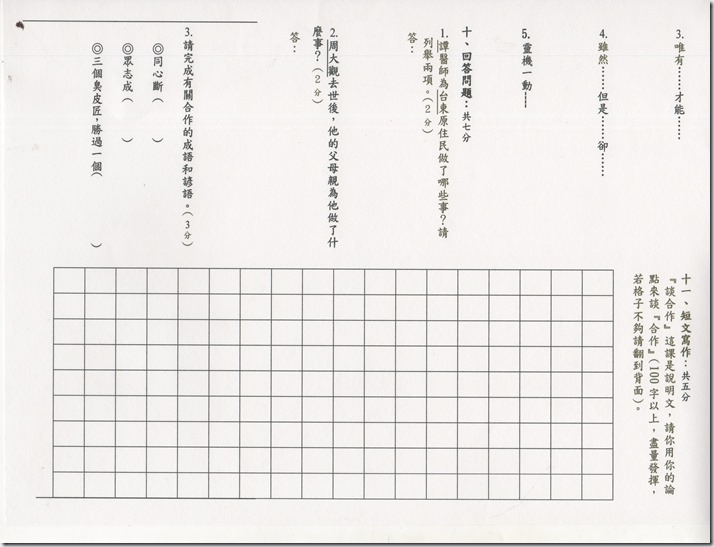 3. 唯有……才能……
4. 雖然……但是……卻……
5. 靈機一動──
十、回答問題：共七分
1. 譚醫師為台東原住民做了哪些事？請
列舉兩項。（2 分）
答：
2. 周大觀去世後，他的父母親為他做了什
麼事？（2 分）
答：
3. 請完成有關合作的成語和諺語。（3 分）
◎同心斷（　　）
◎眾志成（　　）
◎三個臭皮匠，勝過一個（　　　　）
十一、短文寫作：共五分
『談合作』這課是說明文，請你用你的論
點來談『合作』（100 字以上，盡量發揮，
若格子不夠請翻到背面）。